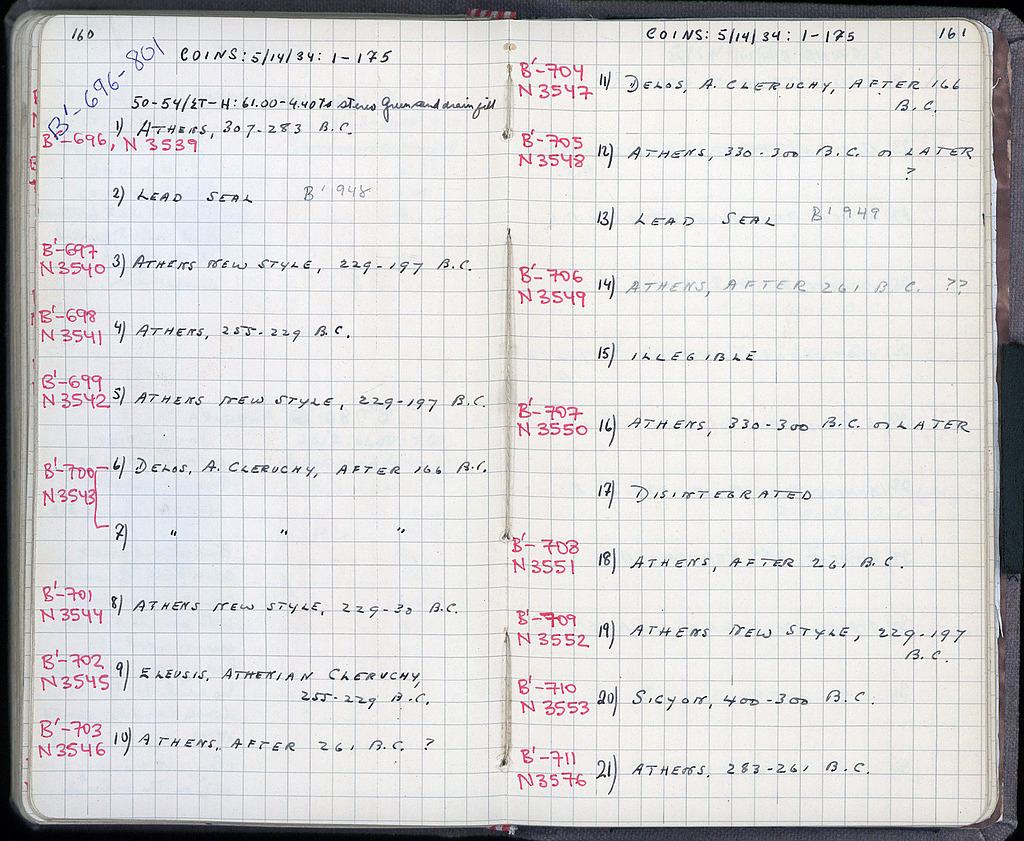 160
COINS: 5/14/34: 1-175
B'-696-801
50-54/ΣT-H: 61.00-4.40 To stereo Green sand drain fill
1) ATHENS, 307-283 B.C.
B'-696, N 3539
2) LEAD SEAL B'948
B'-697
N 3540 3) ATHENS NEW STYLE, 229-197 B.C.
B'-698
N 3541 4) ATHENS, 255-229 B.C.
B'-699
N 3542 5) ATHENS NEW STYLE, 229-197 B.C.
B'-700 6) DELOS, A. CLERUCHY, AFTER 166 B.C.
N 3543
7) " " "
B'-701
N 3544 8) ATHENS NEW STYLE, 229-30 B.C.
B'-702
N 3545 9) ELEUSIS, ATHENIAN CLERUCHY,
255-229 B.C.
B'-703
N 3546 10) ATHENS, AFTER 261 B.C. ?
COINS: 5/14/34: 1-175 161
B'-704
N 3547 11) DELOS, A. CLERUCHY, AFTER 166
B.C.
B'-705
N 3548 12) ATHENS, 330-300 B.C. or LATER
?
13) LEAD SEAL B'949
B'-706
N 3549 14) ATHENS, AFTER 261 B.C. ??
15) ILLEGIBLE
B'-707
N 3550 16) ATHENS, 330-300 B.C. or LATER
17) DISINTEGRATED
B'-708
N 3551 18) ATHENS, AFTER 261 B.C.
B'-709
N 3552 19) ATHENS NEW STYLE, 229-197
B.C.
B'-710
N 3553 20) SICYON, 400-300 B.C.
B'-711
N 3576 21) ATHENS, 283-261 B.C.